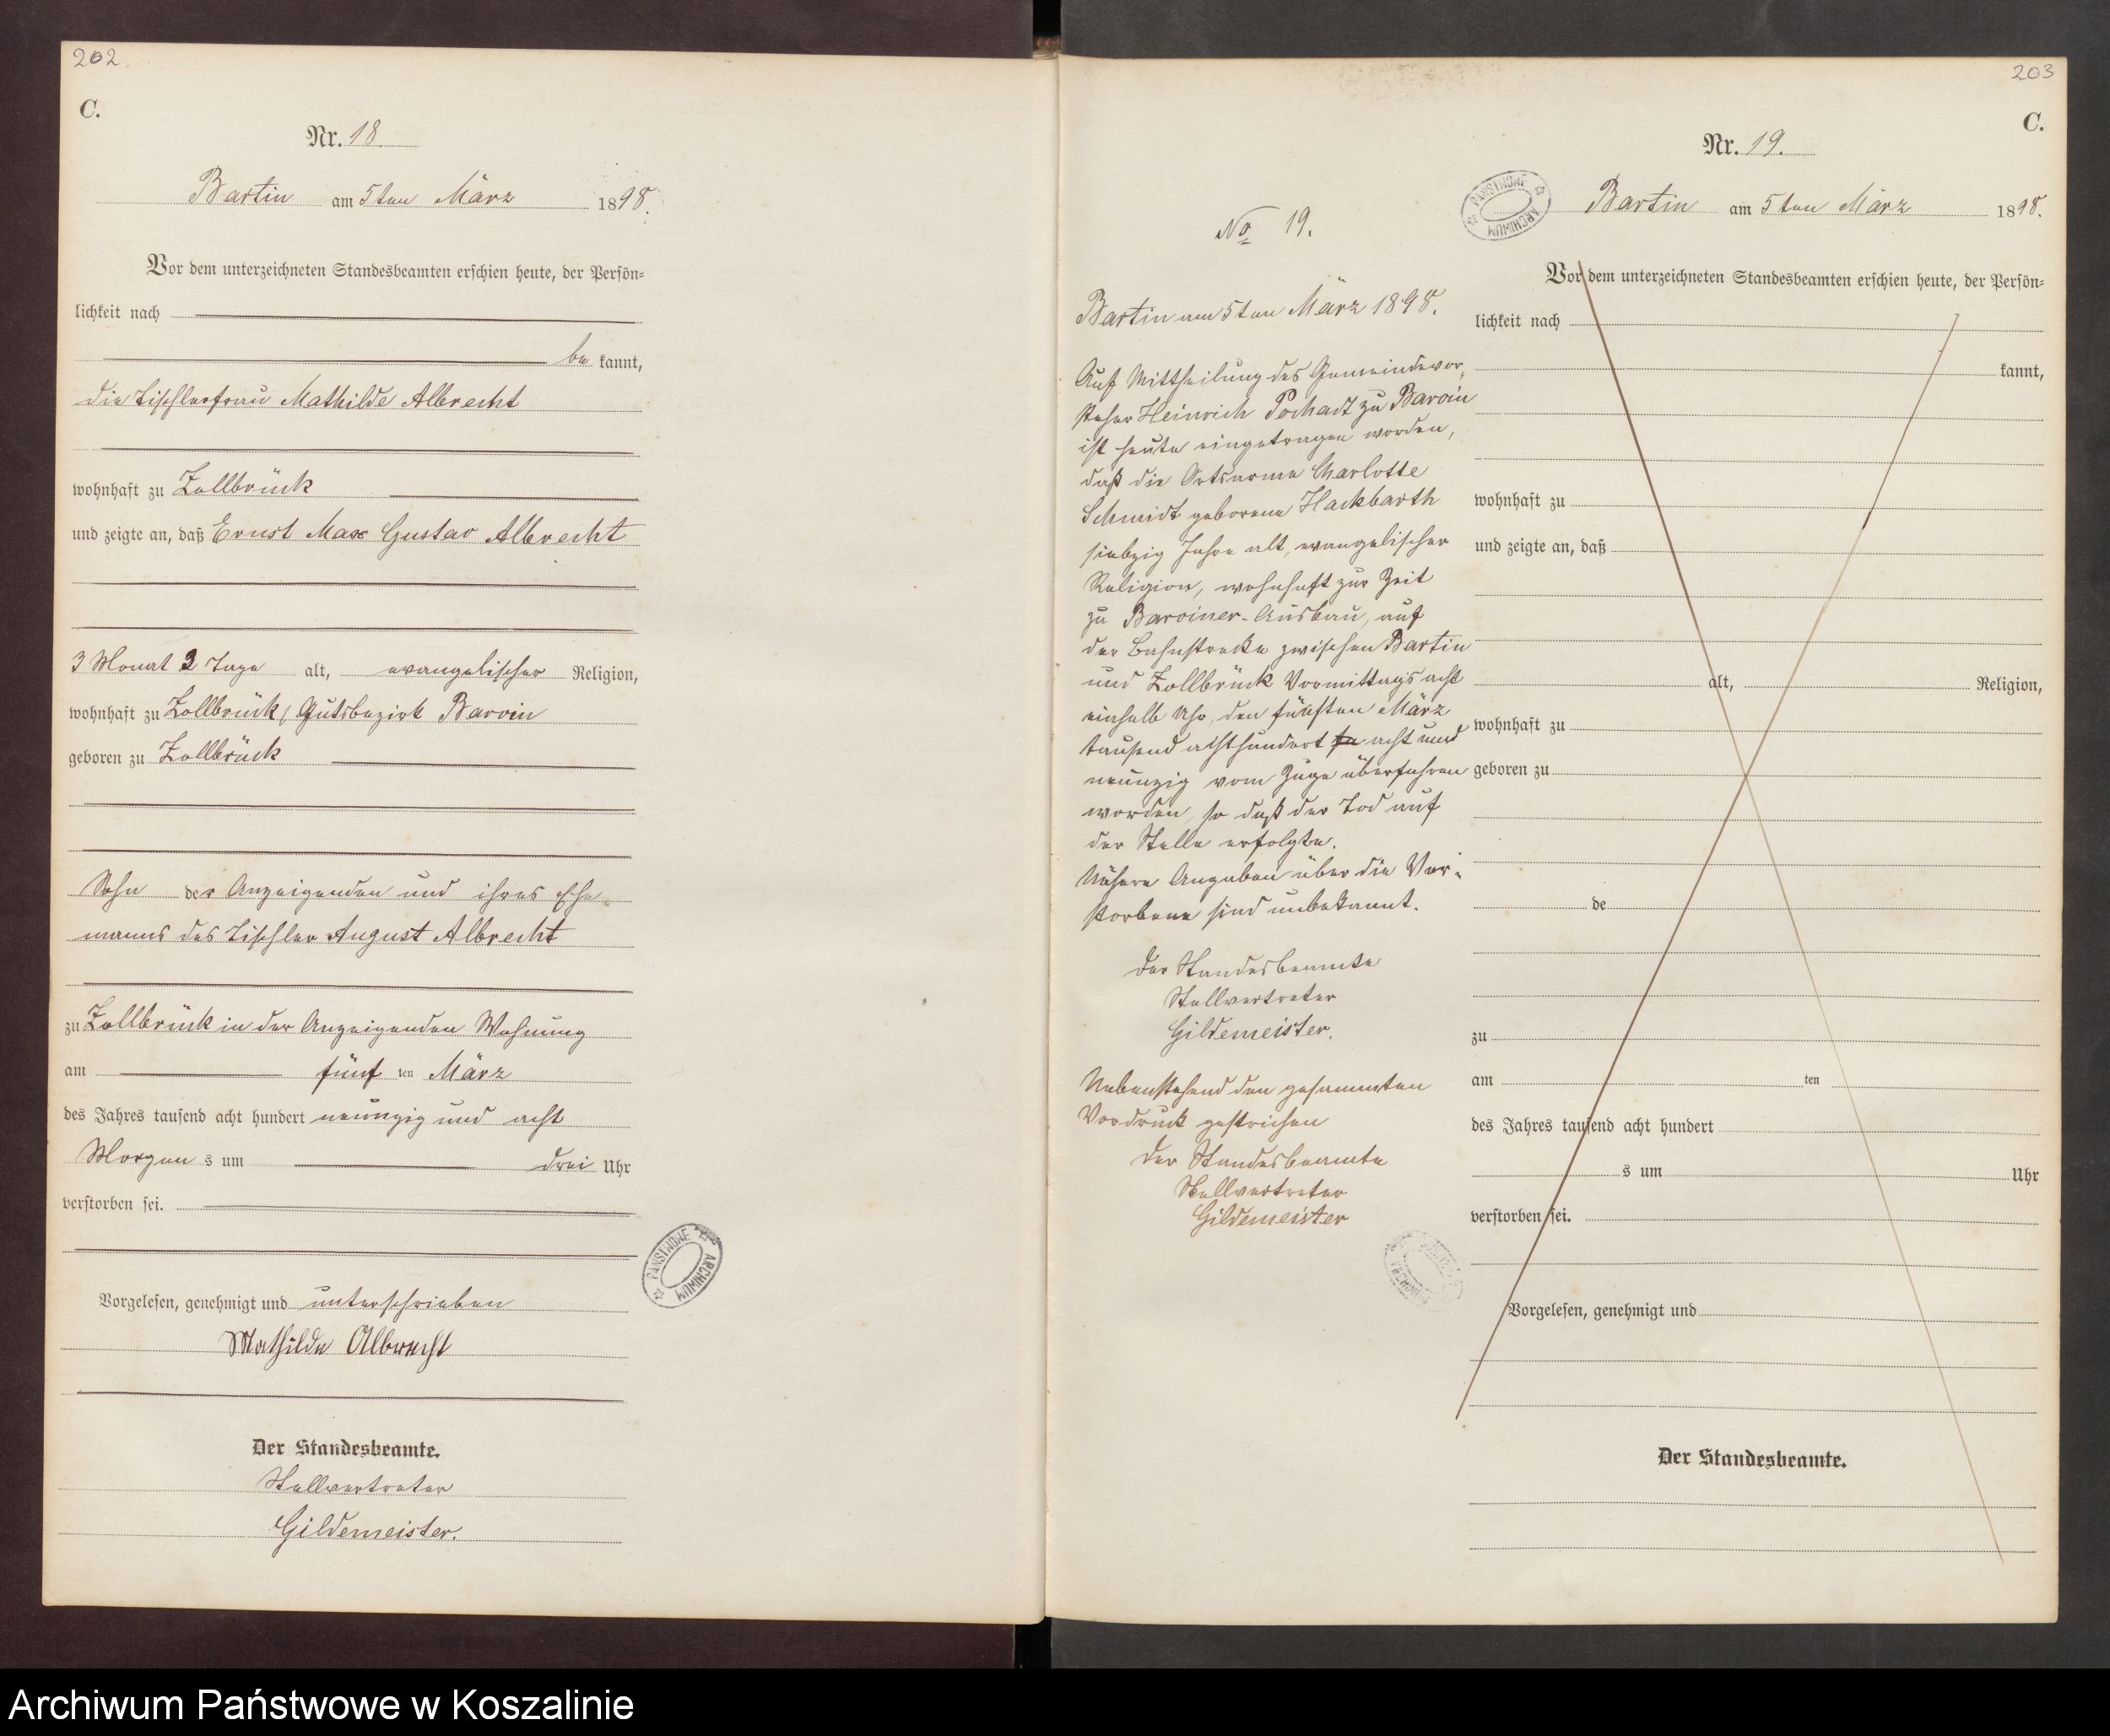 202.
C.
Nr. 18.
Bartin am 5ten März 1898.
Vor dem unterzeichneten Standesbeamten erschien heute, der Persön-
lichkeit nach
be kannt,
die Tischlerfrau Mathilde Albrecht
wohnhaft zu Zollbrück
und zeigte an, daß Ernst Max Gustav Albrecht
3 Monat 2 Tage alt, evangelischer Religion,
wohnhaft zu Zollbrück, Gutsbezirk Barvin
geboren zu Zollbrück
Sohn der Anzeigenden und ihres Ehe-
manns des Tischler August Albrecht
zu Zollbrück in der Anzeigenden Wohnung
am fünf ten März
des Jahres tausend acht hundert neunzig und acht
Morgen s um drei Uhr
verstorben sei.
Vorgelesen, genehmigt und unterschrieben
Mathilde Albrecht
Der Standesbeamte.
Stellvertreter
Gildemeister.
PAŃSTWOWE ARCHIWUM
203
C.
Nr. 19.
PAŃSTWOWE ARCHIWUM
Bartin am 5ten März 1898.
No 19.
Bartin am 5ten März 1898.
Auf Mittheilung des Gemeindevor-
steher Heinrich Pochadt zu Barvin
ist heute eingetragen worden,
daß die Ortsarme Charlotte
Schmidt geborene Hackbarth
siebzig Jahre alt, evangelischer
Religion, wohnhaft zur Zeit
zu Barviner-Ausbau, auf
der Bahnstrecke zwischen Bartin
und Zollbrück Vormittags acht
einhalb Uhr, den fünften März
tausend achthundert acht und
neunzig vom Zuge überfahren
worden, so daß der Tod auf
der Stelle erfolgte.
Nähere Angaben über die Ver-
storbene sind unbekannt.
Der Standesbeamte
Stellvertreter
Gildemeister.
Nebenstehend den gesammten
Vordruck gestrichen
Der Standesbeamte
Stellvertreter
Gildemeister
Vor dem unterzeichneten Standesbeamten erschien heute, der Persön-
lichkeit nach
kannt,
wohnhaft zu
und zeigte an, daß
alt, Religion,
wohnhaft zu
geboren zu
de
zu
am ten
des Jahres tausend acht hundert
s um Uhr
verstorben sei.
Vorgelesen, genehmigt und
Der Standesbeamte.
Archiwum Państwowe w Koszalinie